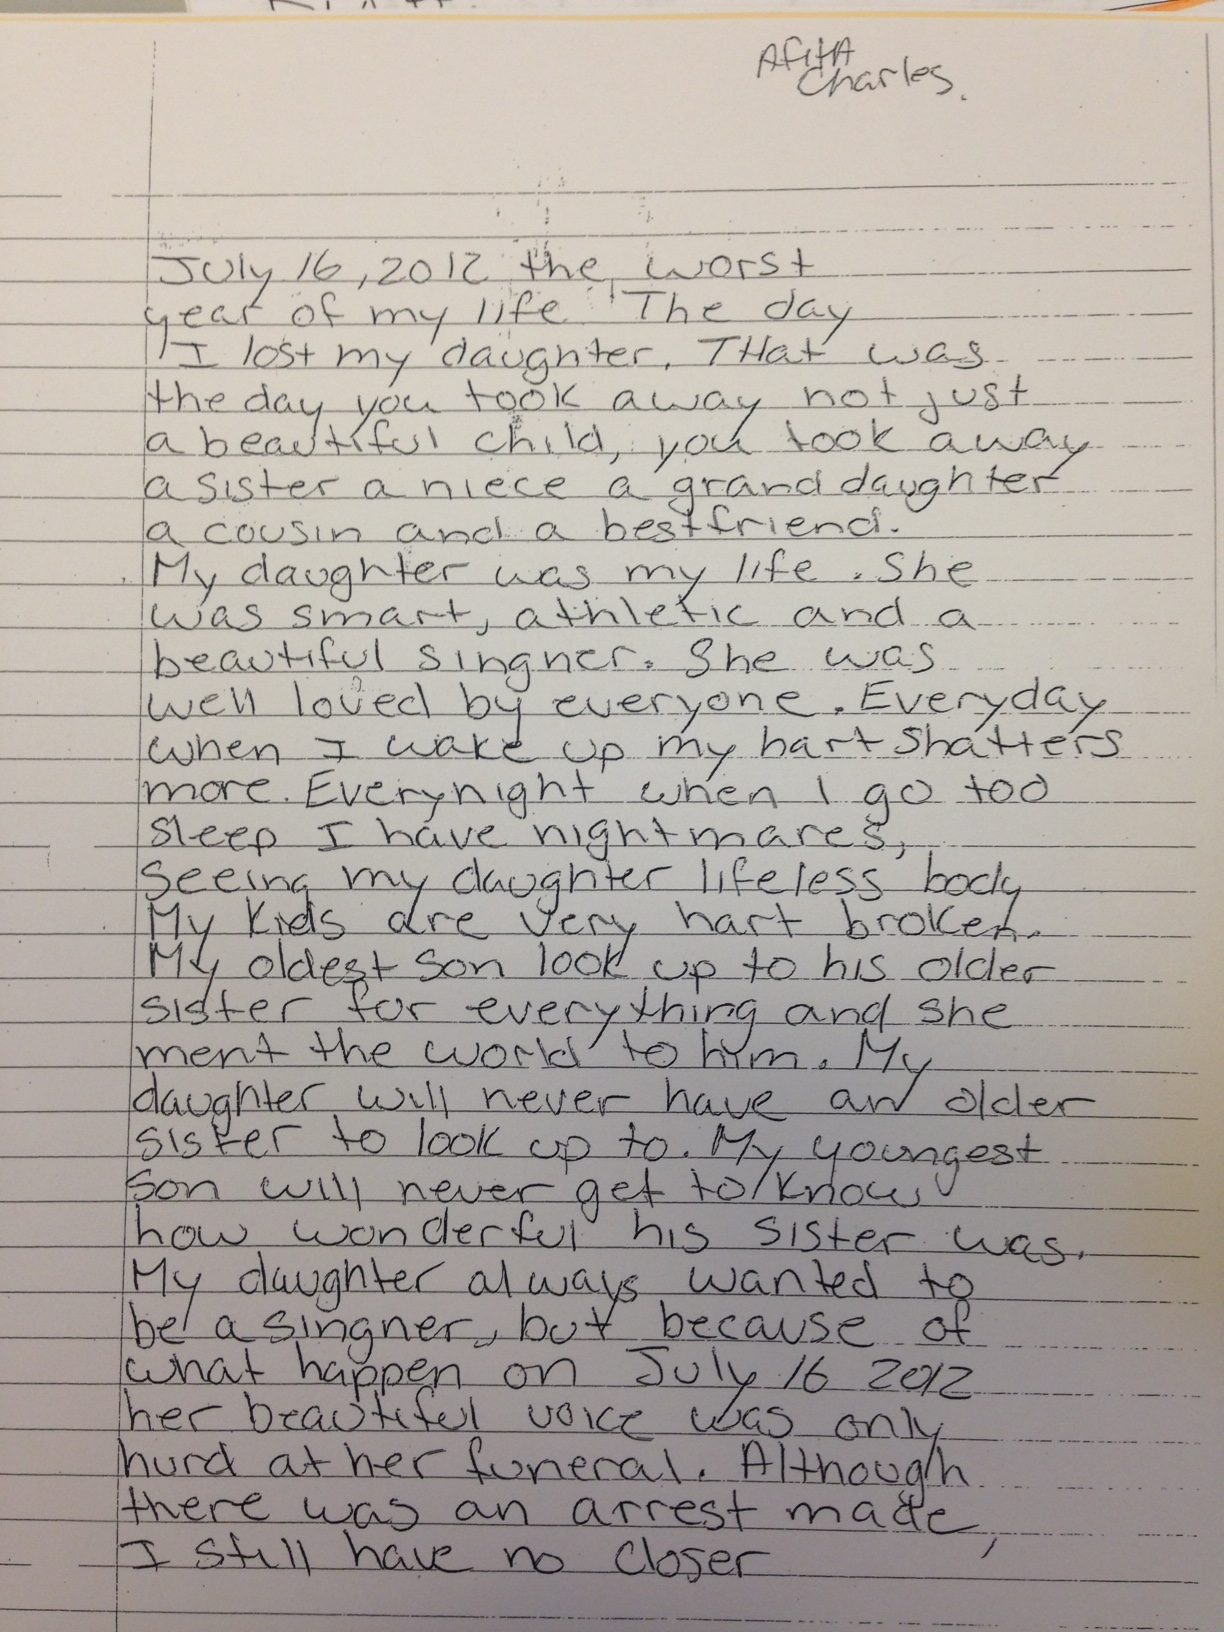 Afita
Charles.
July 16, 2012 the worst
year of my life The day
I lost my daughter. THat was
the day you took away not just
a beautiful child, you took away
a sister a niece a grand daughter
a cousin and a best friend.
My daughter was my life. She
was smart, athletic and a
beautiful singner. She was
well loved by everyone. Everyday
when I wake up my hart shatters
more. Everynight when I go too
sleep I have nightmares,
seeing my daughter lifeless body
My kids are very hart broken.
My oldest son look up to his older
sister for everything and she
ment the world to him. My
daughter will never have an older
sister to look up to. My youngest
son will never get to know
how wonderful his sister was.
My daughter always wanted to
be a singner, but because of
what happen on July 16 2012
her beautiful voice was only
hurd at her funeral. Although
there was an arrest made,
I still have no closer